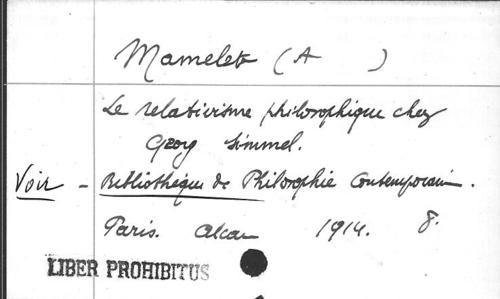 Mamelet (A )
Le relativisme philosophique chez
Georg Simmel.
Voir - Bibliothèque de Philosophie Contemporain.
Paris. Alcan 1914. 8.
LIBER PROHIBITUS